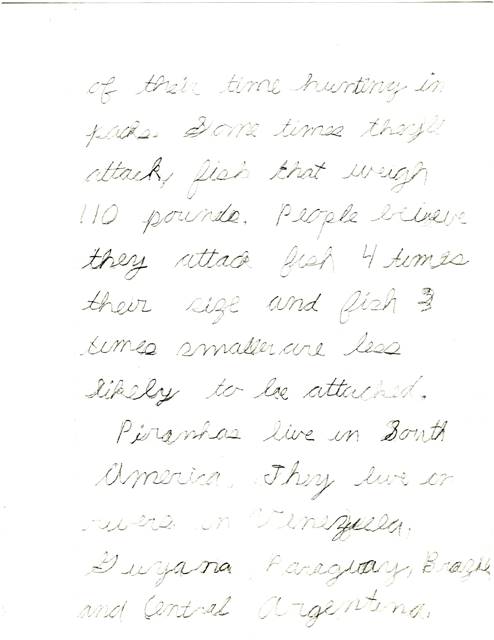 of their time hunting in
packs. Some times they'll
attack, fish that weigh
110 pounds. People believe
they attack fish 4 times
their size and fish 3
times smaller are less
likely to be attacked.
Piranhas live in South
America. They live in
rivers in Venezuela,
Guyana, Paraguay, Brazil
and Central Argentina.